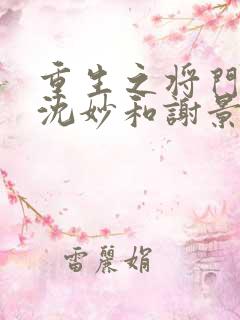 重生之将門
沈妙和謝景
雷麗娟